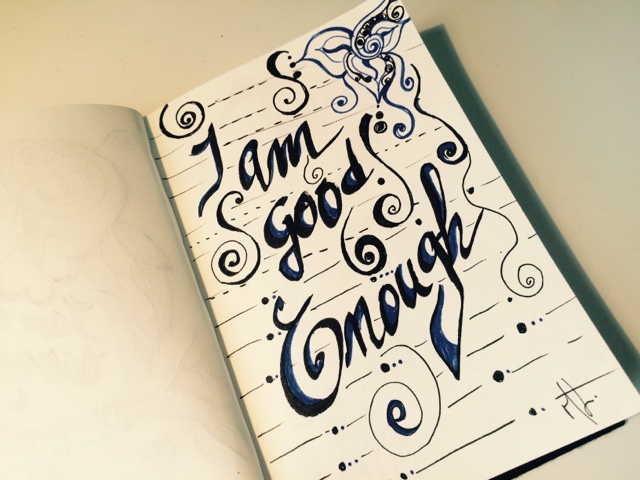 I am
good
Enough